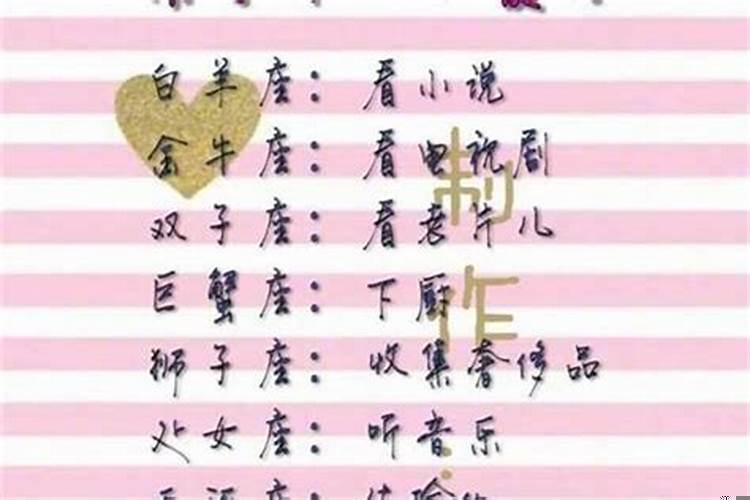 白羊座：看小说
金牛座：看电视剧
双子座：看老片儿
巨蟹座：下厨
狮子座：收集奢侈品
处女座：听音乐
制作